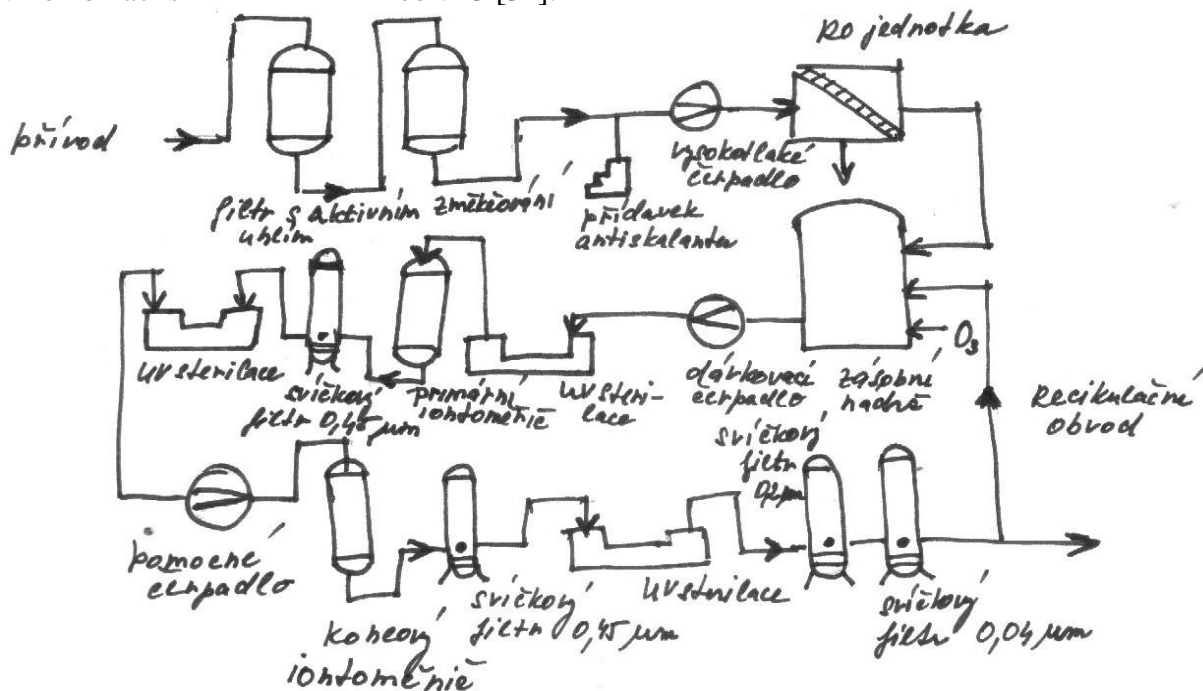 RO jednotka
přívod
filtr s aktivním
uhlím
změkčování
přídavek
antiskalantu
vysokotlaké
čerpadlo
UV sterilace
svíčkový
filtr 0,45 µm
primární
iontoměnič
UV steri-
lace
dávkovací
čerpadlo
zásobní
nádrž
O3
Recikulační
obvod
svíčkový
filtr
0,2 µm
pomocné
čerpadlo
koncový
iontoměnič
svíčkový
filtr 0,45 µm
UV sterilace
svíčkový
filtr 0,04 µm